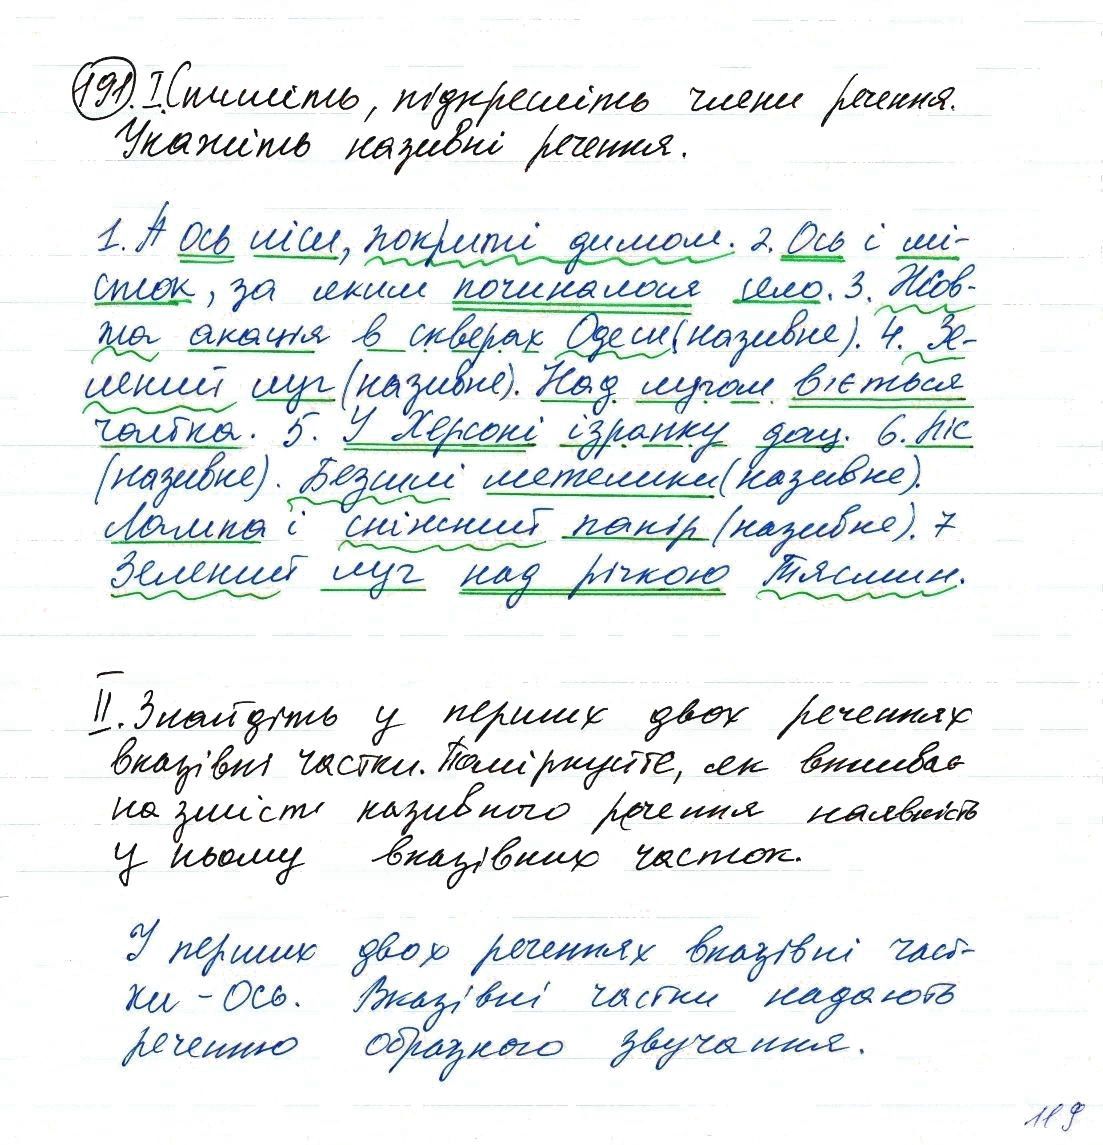 191. I. Спишіть, підкресліть члени речення.
Укажіть називні речення.
1. А ось ліси, покриті димом. 2. Ось і мі-
сток, за яким починалося село. 3. Жов-
та акація в скверах Одеси (називне). 4. Зе-
лений луг (називне). Над лугом в'ється
чайка. 5. У Херсоні ізранку дощ. 6. Ліс
(називне). Безсилі метелики (називне).
Лампа і сніжний папір (називне). 7
Зелений луг над річкою Тясмин.
II. Знайдіть у перших двох реченнях
вказівні частки. Поміркуйте, як впливає
на зміст називного речення наявність
у ньому вказівних часток.
У перших двох реченнях вказівні част-
ки - Ось. Вказівні частки надають
реченню образного звучання.
119